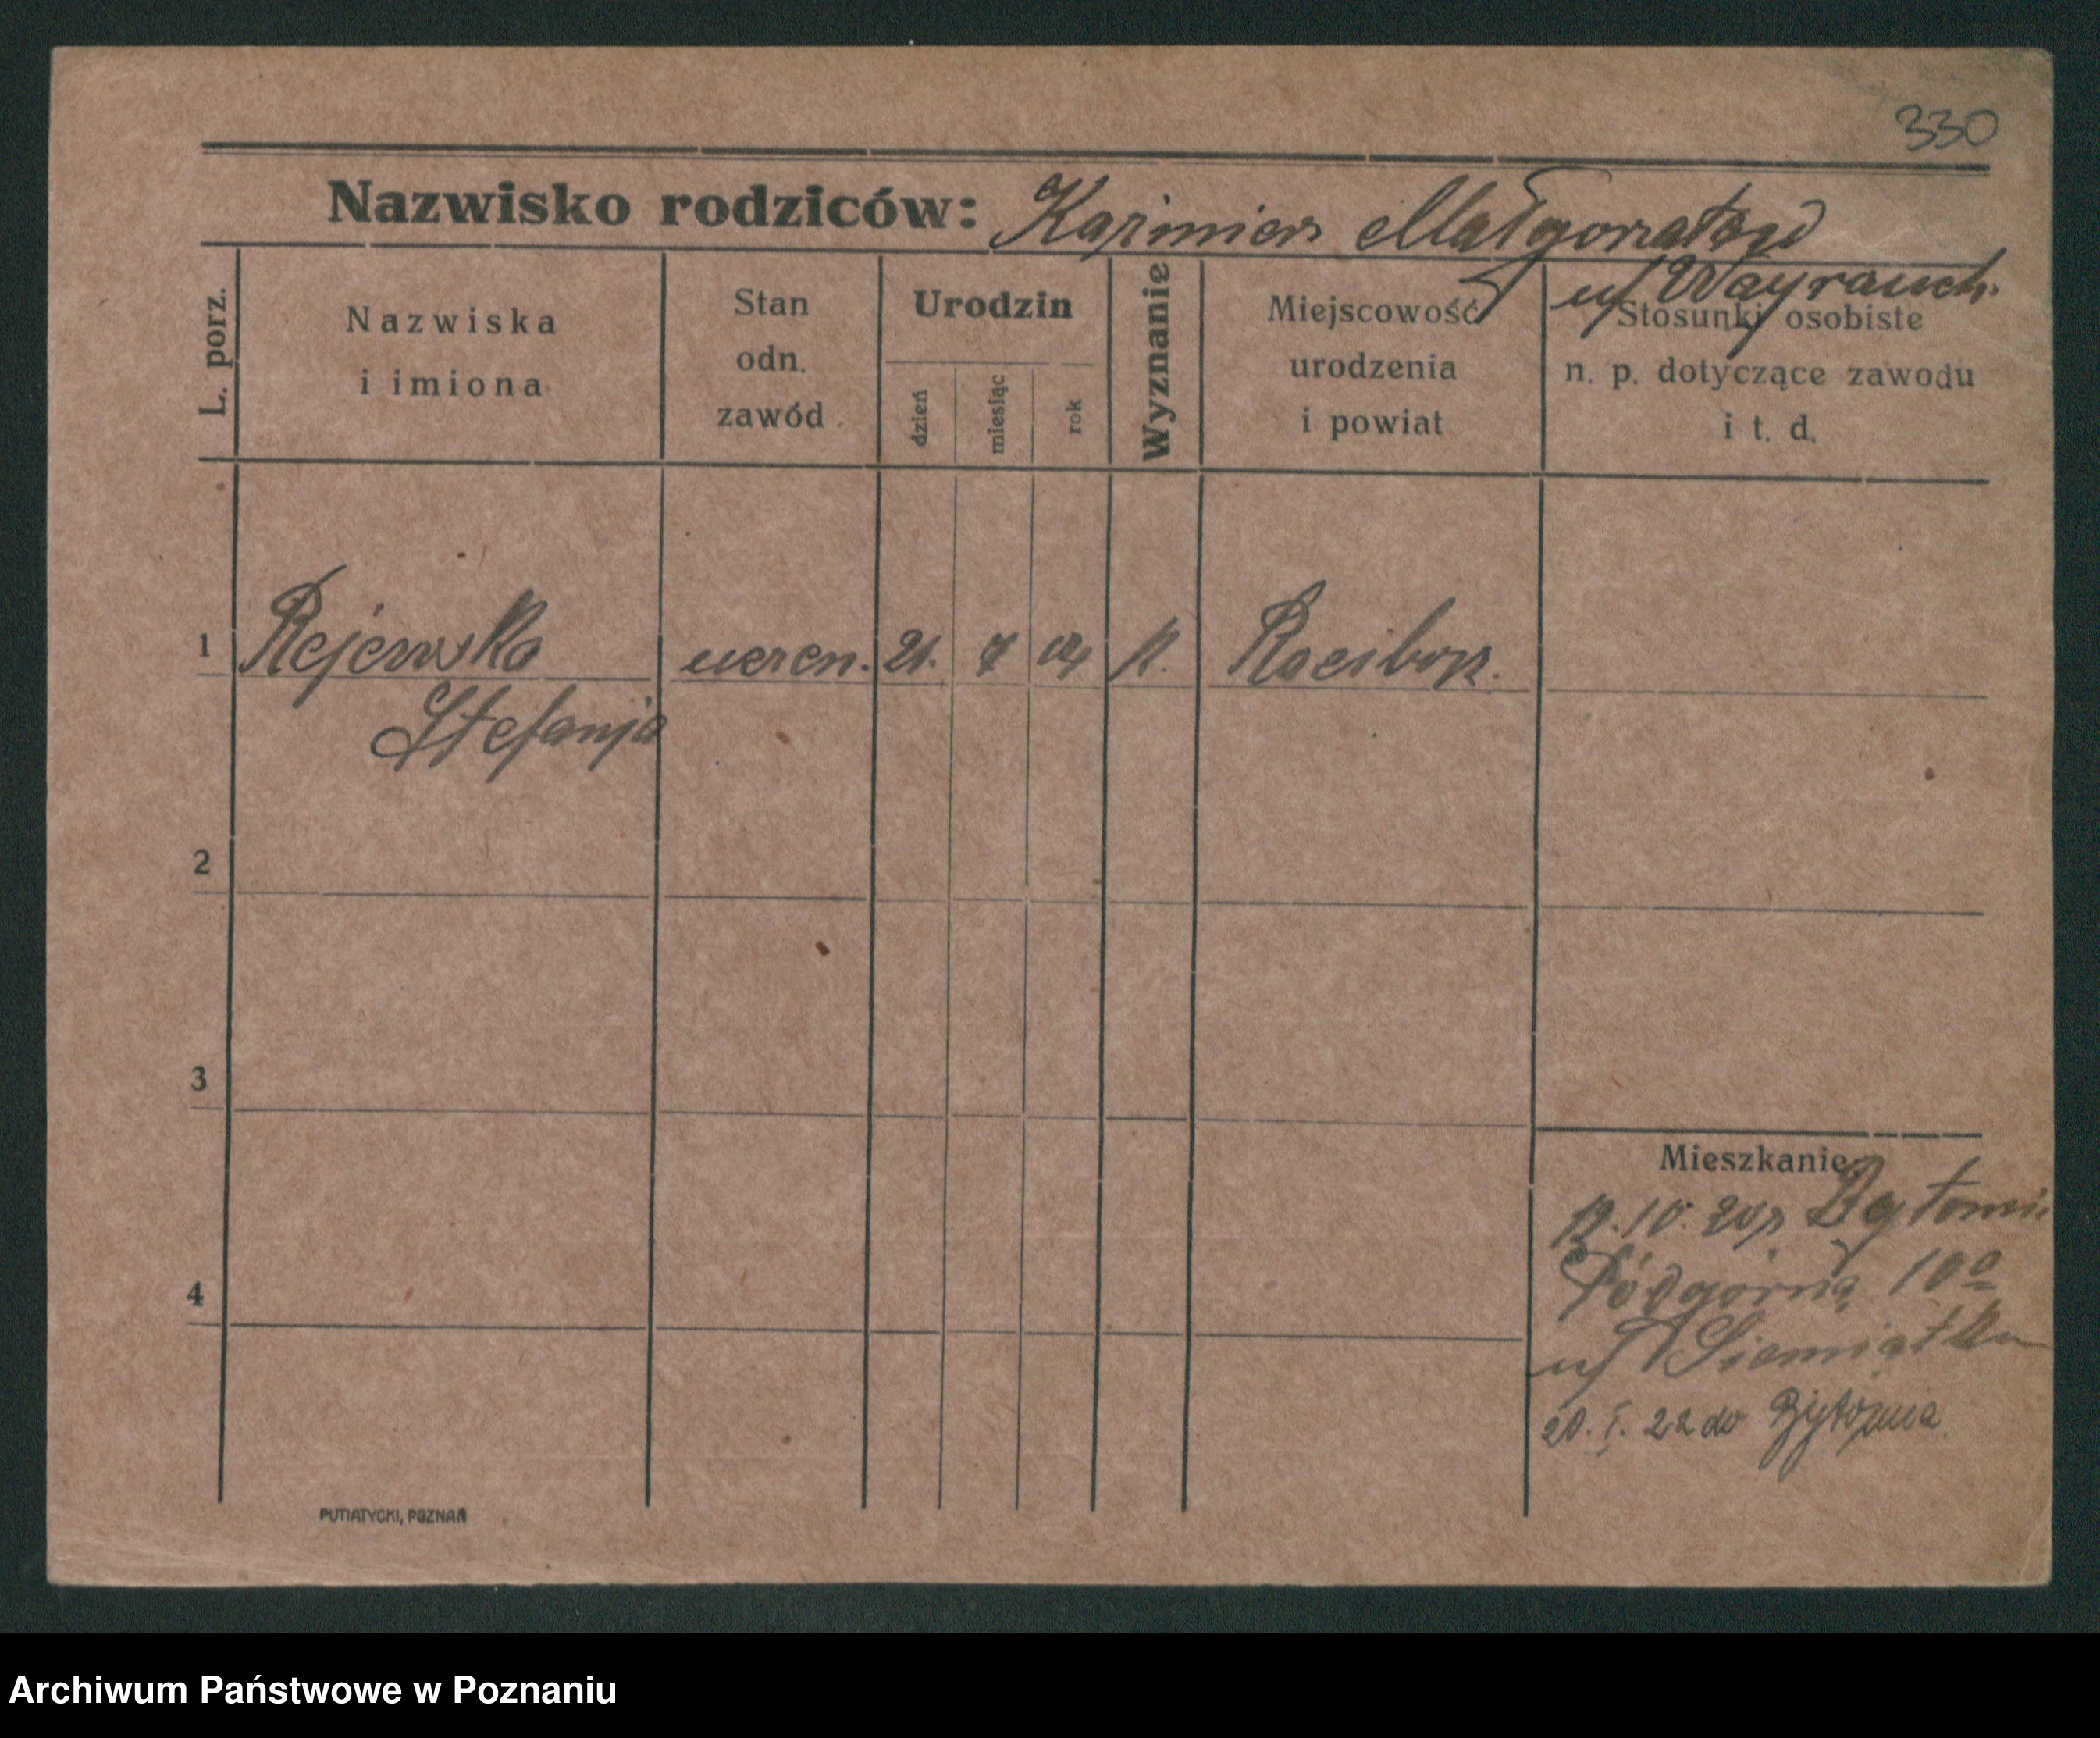 330
Nazwisko rodziców: Kazimierz Małgorzata
L. porz.
Nazwiska
i imiona
Stan
odn.
zawód
Urodzin
dzień
miesiąc
rok
Wyznanie
Miejscowość
urodzenia
i powiat
Stosunki osobiste
n. p. dotyczące zawodu
i t. d.
1 Rejewska uczen. 21. 7 04 k. Raciborz.
Stefanja
2
3
Mieszkanie
12.10. 20 z Bytomia
Podgórna 10a
4
u Siemiątk
20. I. 22 do Bytomia.
PUTIATYCKI, POZNAŃ
Archiwum Państwowe w Poznaniu